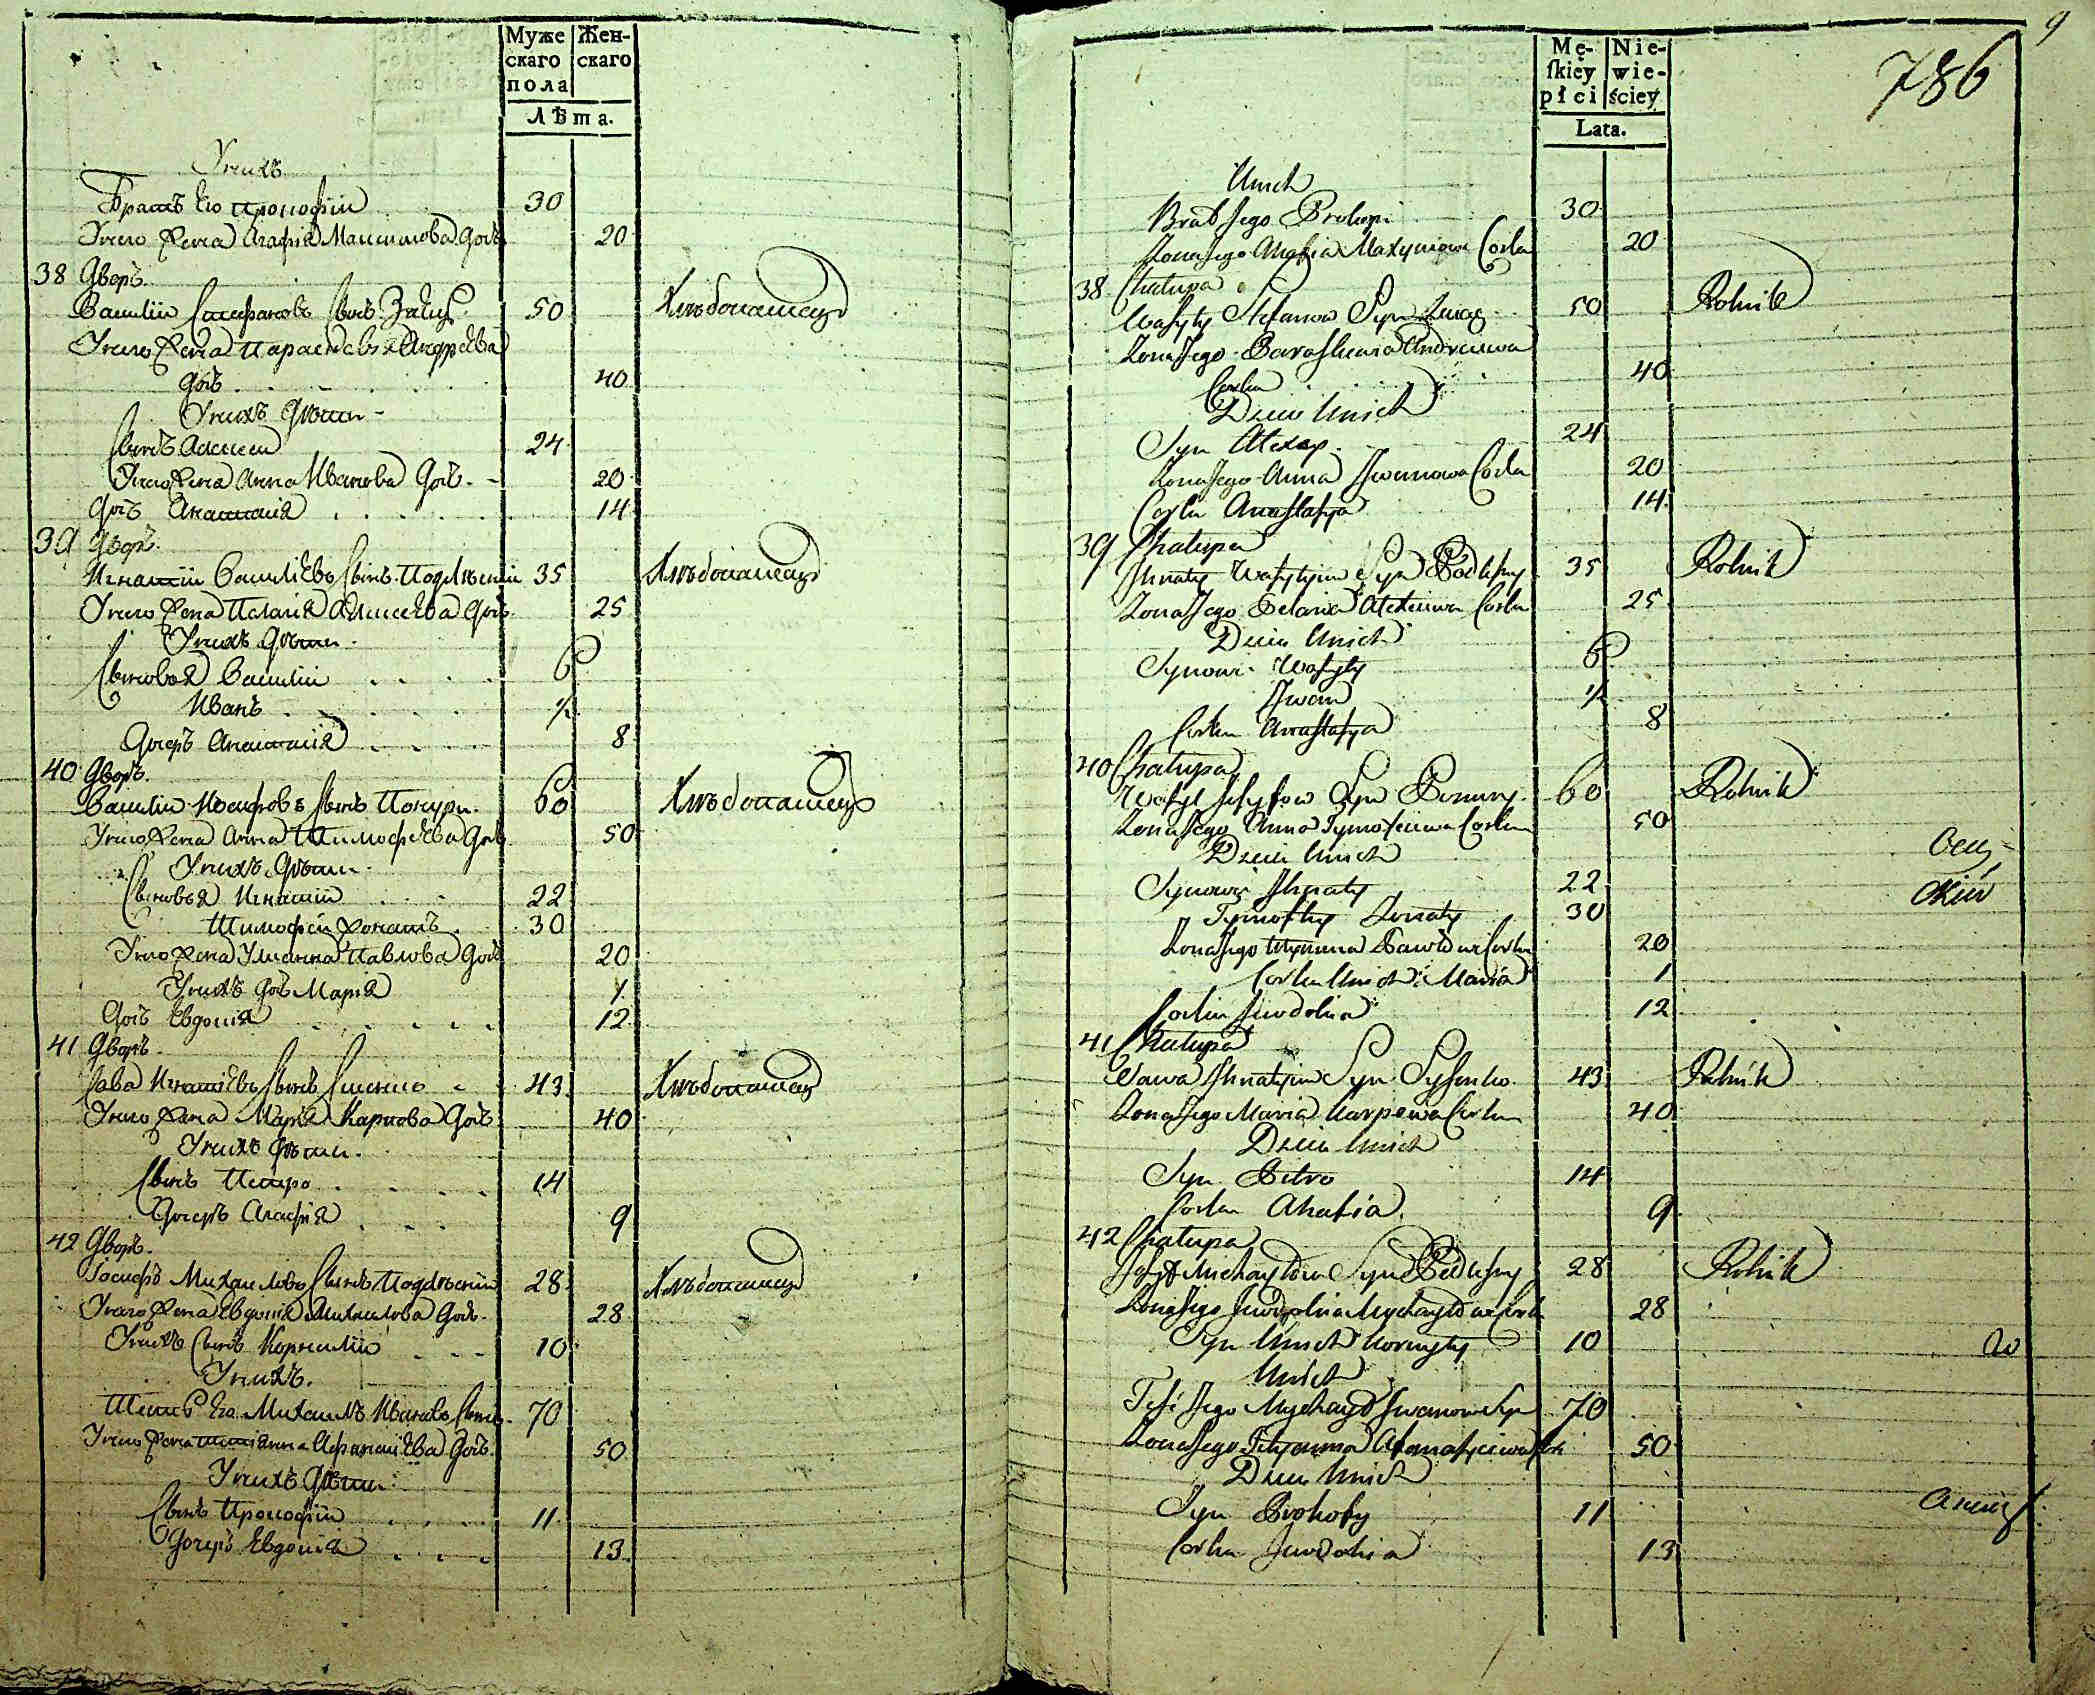 Муже
скаго
пола
Жен-
скаго
Лѣта.
Унихъ
Братъ Его Прокофiй 30
Унего Жена Агафiя Максимова Дочь 20
38 Дворъ.
Василiй Стефановъ Сынъ 50 Хлѣбопашецъ
Унего Жена Параскевiя Андрѣева
Дочь 40
Унихъ Дѣти
Сынъ Алексей 24
Унего Жена Анна Иванова Дочь 20
Дочь Анастасiя 14
39 Дворъ.
Игнатiй Василiевъ Сынъ Подлѣснiй 35 Хлѣбопашецъ
Унего Жена Пелагiя Алексеева Дочь 25
Унихъ Дѣти
Сыновья Василiй 6
Иванъ ½
Дочерь Анастасiя 8
40 Дворъ.
Василiй Иосифовъ Сынъ 60 Хлѣбопашецъ
Унего Жена Анна Тимофѣева Дочь 50
Унихъ Дѣти
Сыновья Игнатiй 22
Тимофей Женатъ 30
Унего Жена Улiянна Павлова Дочь 20
Унихъ Дочь Марiя 1
Дочь Евдокiя 12
41 Дворъ.
Сава Игнатiевъ Сынъ 43 Хлѣбопашецъ
Унего Жена Марiя Карпова Дочь 40
Унихъ Дѣти
Сынъ Петро 14
Дочерь Агафiя 9
42 Дворъ.
Iосифъ Михаиловъ Сынъ Подлѣснiй 28 Хлѣбопашецъ
Унего Жена Евдокiя Михаилова Дочь 28
Унихъ Сынъ Корнилiй 10
Унихъ
Тесть Его Михаилъ Ивановъ Сынъ 70
Унего Жена Татiянна Афанасiева Дочь 50
Унихъ Дѣти
Сынъ Прокофiй 11
Дочерь Евдокiя 13
9
786
Mę-
ſkiey
płci
Nie-
wie-
ściey
Lata.
Unich
Brat Jego Prokopi 30
Zona Jego Ahafia Maxymowa Corka 20
38 Chałupa
Wasyly Stefanow Syn 50 Rolnik
Zona Jego Paraskewia Andreiewa
Corka 40
Dzieci Unich
Syn Alexey 24
Zona Jego Anna Iwanowa Corka 20
Corka Anastasya 14
39 Chałupa
Ihnaty Wasylyiow Syn Podlisny 35 Rolnik
Zona Jego Pelaia Alexieiewa Corka 25
Dzieci Unich
Synowi Wasyly 6
Iwan ½
Corka Anastasya 8
40 Chałupa
Wasyl Josyfow Syn 60 Rolnik
Zona Jego Anna Tymofeiewa Corka 50
Dzieci Unich
Synowi Ihnaty 22
Tymofiey Zonaty 30
Zona Jego Ulyanna Pawłowa Corka 20
Corka Unich Maria 1
Corka Juwdokia 12
41 Chałupa
Sawa Ihnatyiow Syn 43 Rolnik
Zona Jego Maria Karpowa Corka 40
Dzieci Unich
Syn Petro 14
Corka Ahafia 9
42 Chałupa
Josyf Michayłow Syn Podlisny 28 Rolnik
Zona Jego Juwdokia Mychayłowa Corka 28
Syn Unich Kornyły 10
Unich
Teść Jego Mychayło Iwanow Syn 70
Zona Jego Tetyanna Afanasyiewa Cor 50
Dzieci Unich
Syn Prokofy 11
Corka Juwdokia 13